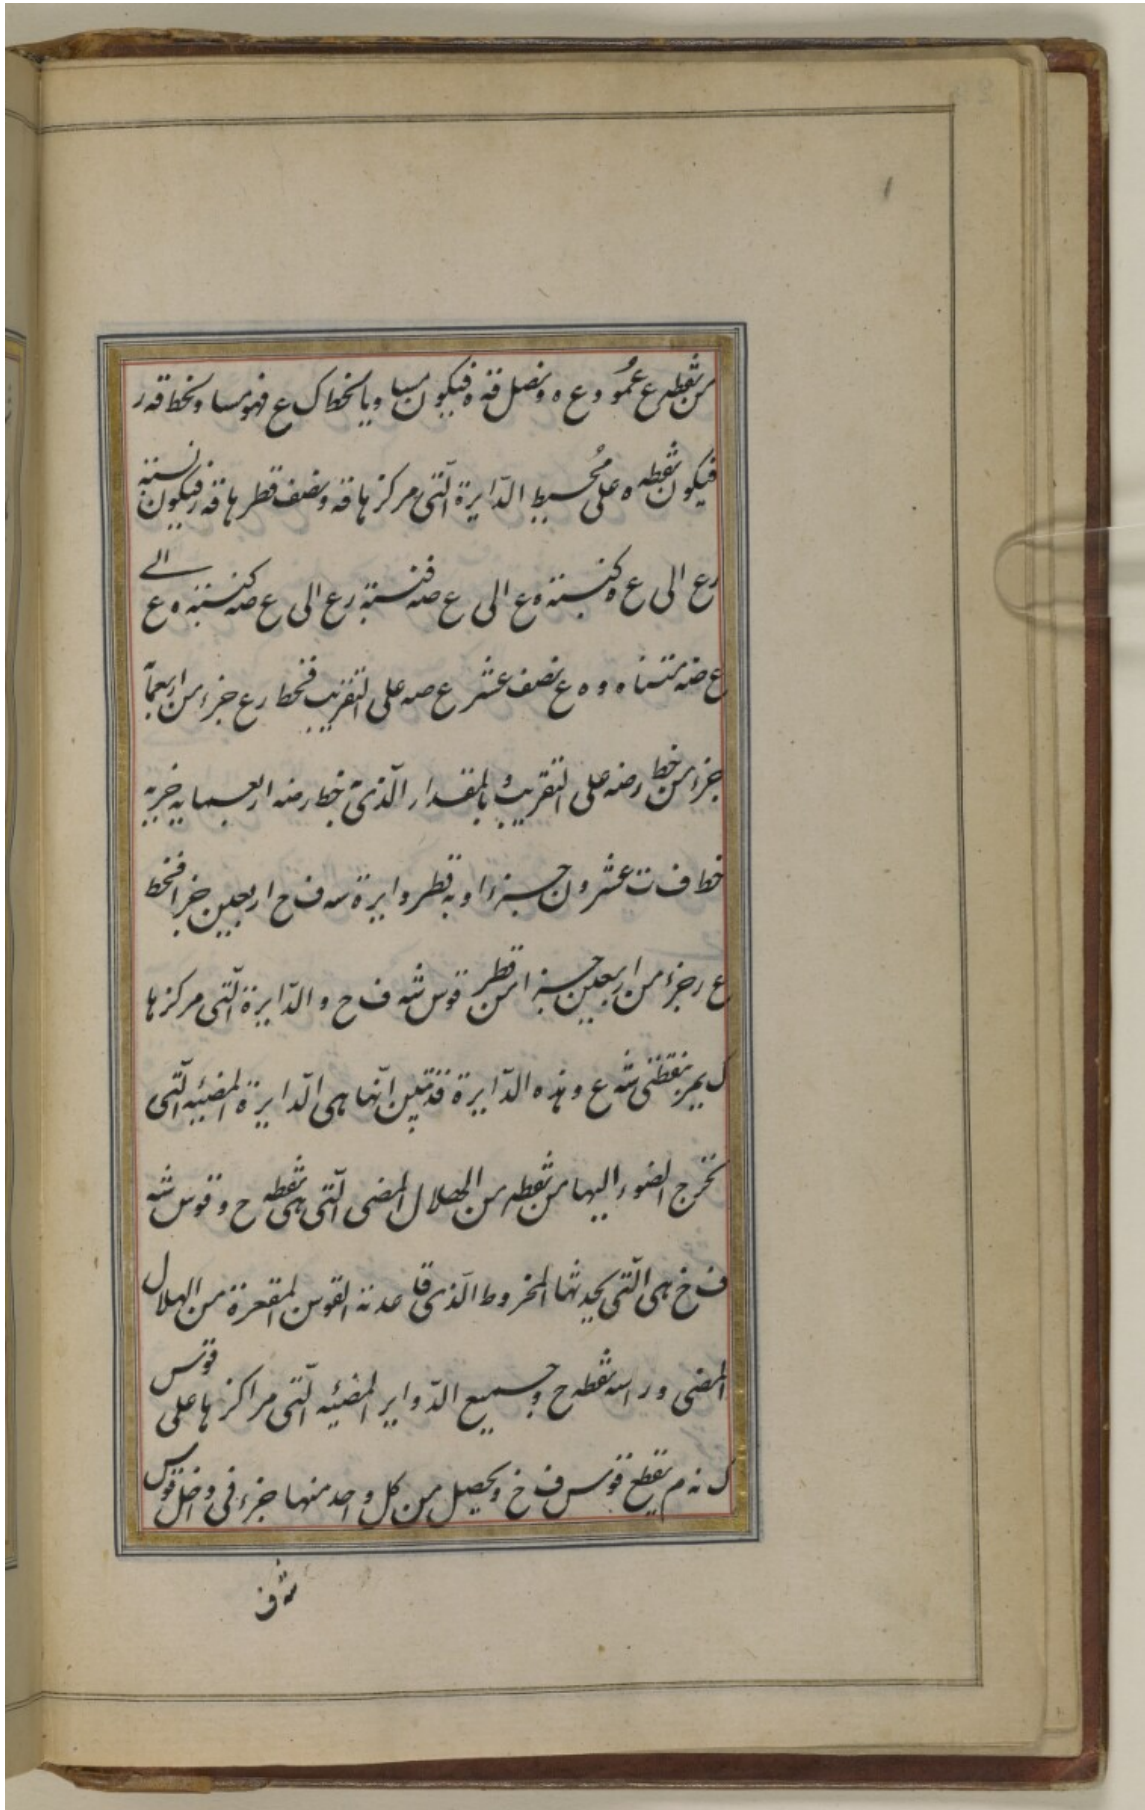 من نقطه ع عمود ع ه ونصل قه ه فيكون مساويا لخط ك ع فهو مساو لخط قه ر
فيكون نقطه ه على محيط الدايرة التى مركزها قه ونصف قطرها قه ر فيكون نسبة
رع الى ع ه كنسبة ه ع الى ع صه فنسبة رع الى ع صه كنسبة ه ع الى
ع صه مثناه و ه ع نصف عشر ع صه على التقريب فخط رع جزء من اربعمأ
جزء من خط رصه على التقريب وبالمقدار الذى خط رصه اربعمايه جزء به
خط ف ت عشرون جزءا وبه قطر دايرة سه ف خ اربعين جزا فخط
ع ر جزء من اربعين جزا من قطر قوس شه ف خ والدايرة التى مركزها
ك يمر بنقطتى شه ع وهذه الدايرة قد تبين انها هى الدايرة المضيئه التى
تخرج الضوء اليها من نقطه من الهلال المضى التى هى نقطه ح وقوس شه
ف خ هى التى يحدثها المخروط الذى قاعدته القوس المقعرة من الهلال
المضى وراسه نقطه ح وجميع الدواير المضيئه التى مراكزها على قوس
ك نه م يقطع قوس ف خ ويحصل من كل واحد منها جزء فى داخل قوس
شه ف